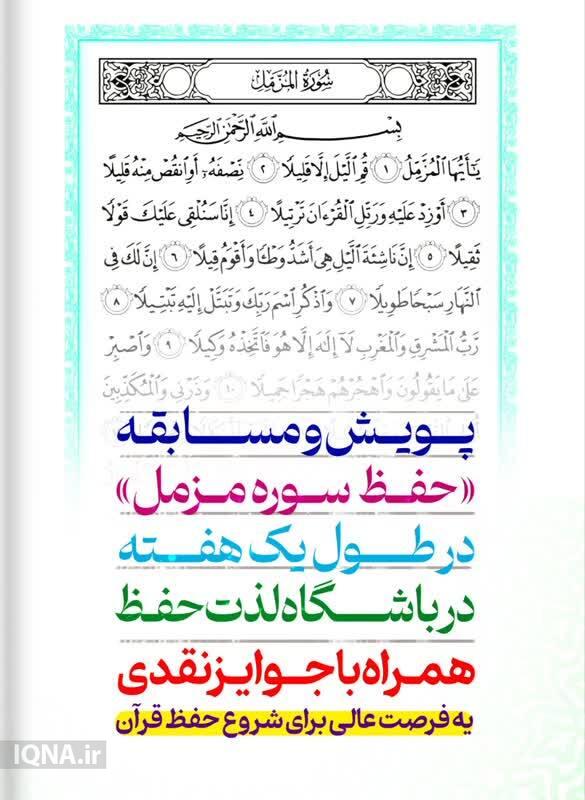 سُورَةُ المُزَّمِّلِ
بِسْمِ اللَّهِ الرَّحْمَٰنِ الرَّحِيمِ
يَٰٓأَيُّهَا ٱلْمُزَّمِّلُ ١ قُمِ ٱلَّيْلَ إِلَّا قَلِيلًا ٢ نِّصْفَهُۥٓ أَوِ ٱنقُصْ مِنْهُ قَلِيلًا
٣ أَوْ زِدْ عَلَيْهِ وَرَتِّلِ ٱلْقُرْءَانَ تَرْتِيلًا ٤ إِنَّا سَنُلْقِى عَلَيْكَ قَوْلًا
ثَقِيلًا ٥ إِنَّ نَاشِئَةَ ٱلَّيْلِ هِىَ أَشَدُّ وَطْـًٔا وَأَقْوَمُ قِيلًا ٦ إِنَّ لَكَ فِى
ٱلنَّهَارِ سَبْحًا طَوِيلًا ٧ وَٱذْكُرِ ٱسْمَ رَبِّكَ وَتَبَتَّلْ إِلَيْهِ تَبْتِيلًا ٨
رَّبُّ ٱلْمَشْرِقِ وَٱلْمَغْرِبِ لَآ إِلَٰهَ إِلَّا هُوَ فَٱتَّخِذْهُ وَكِيلًا ٩ وَٱصْبِرْ
عَلَىٰ مَا يَقُولُونَ وَٱهْجُرْهُمْ هَجْرًا جَمِيلًا ١٠ وَذَرْنِى وَٱلْمُكَذِّبِينَ
پویش و مسابقه
«حفظ سوره مزمل»
در طول یک هفته
در باشگاه لذت حفظ
همراه با جوایز نقدی
یه فرصت عالی برای شروع حفظ قرآن
IQNA.ir